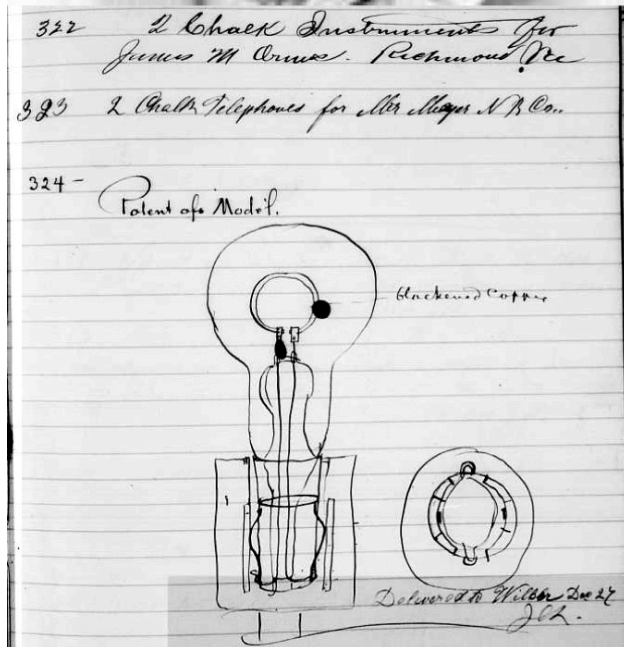 322 2 Chalk Instruments for
James M Ormes. Richmond Va
323 2 Chalk Telephones for Mr Meyer N B Co..
324 - Patent ofs Model.
blackened Copper
Delivered to Wilber Dec 27